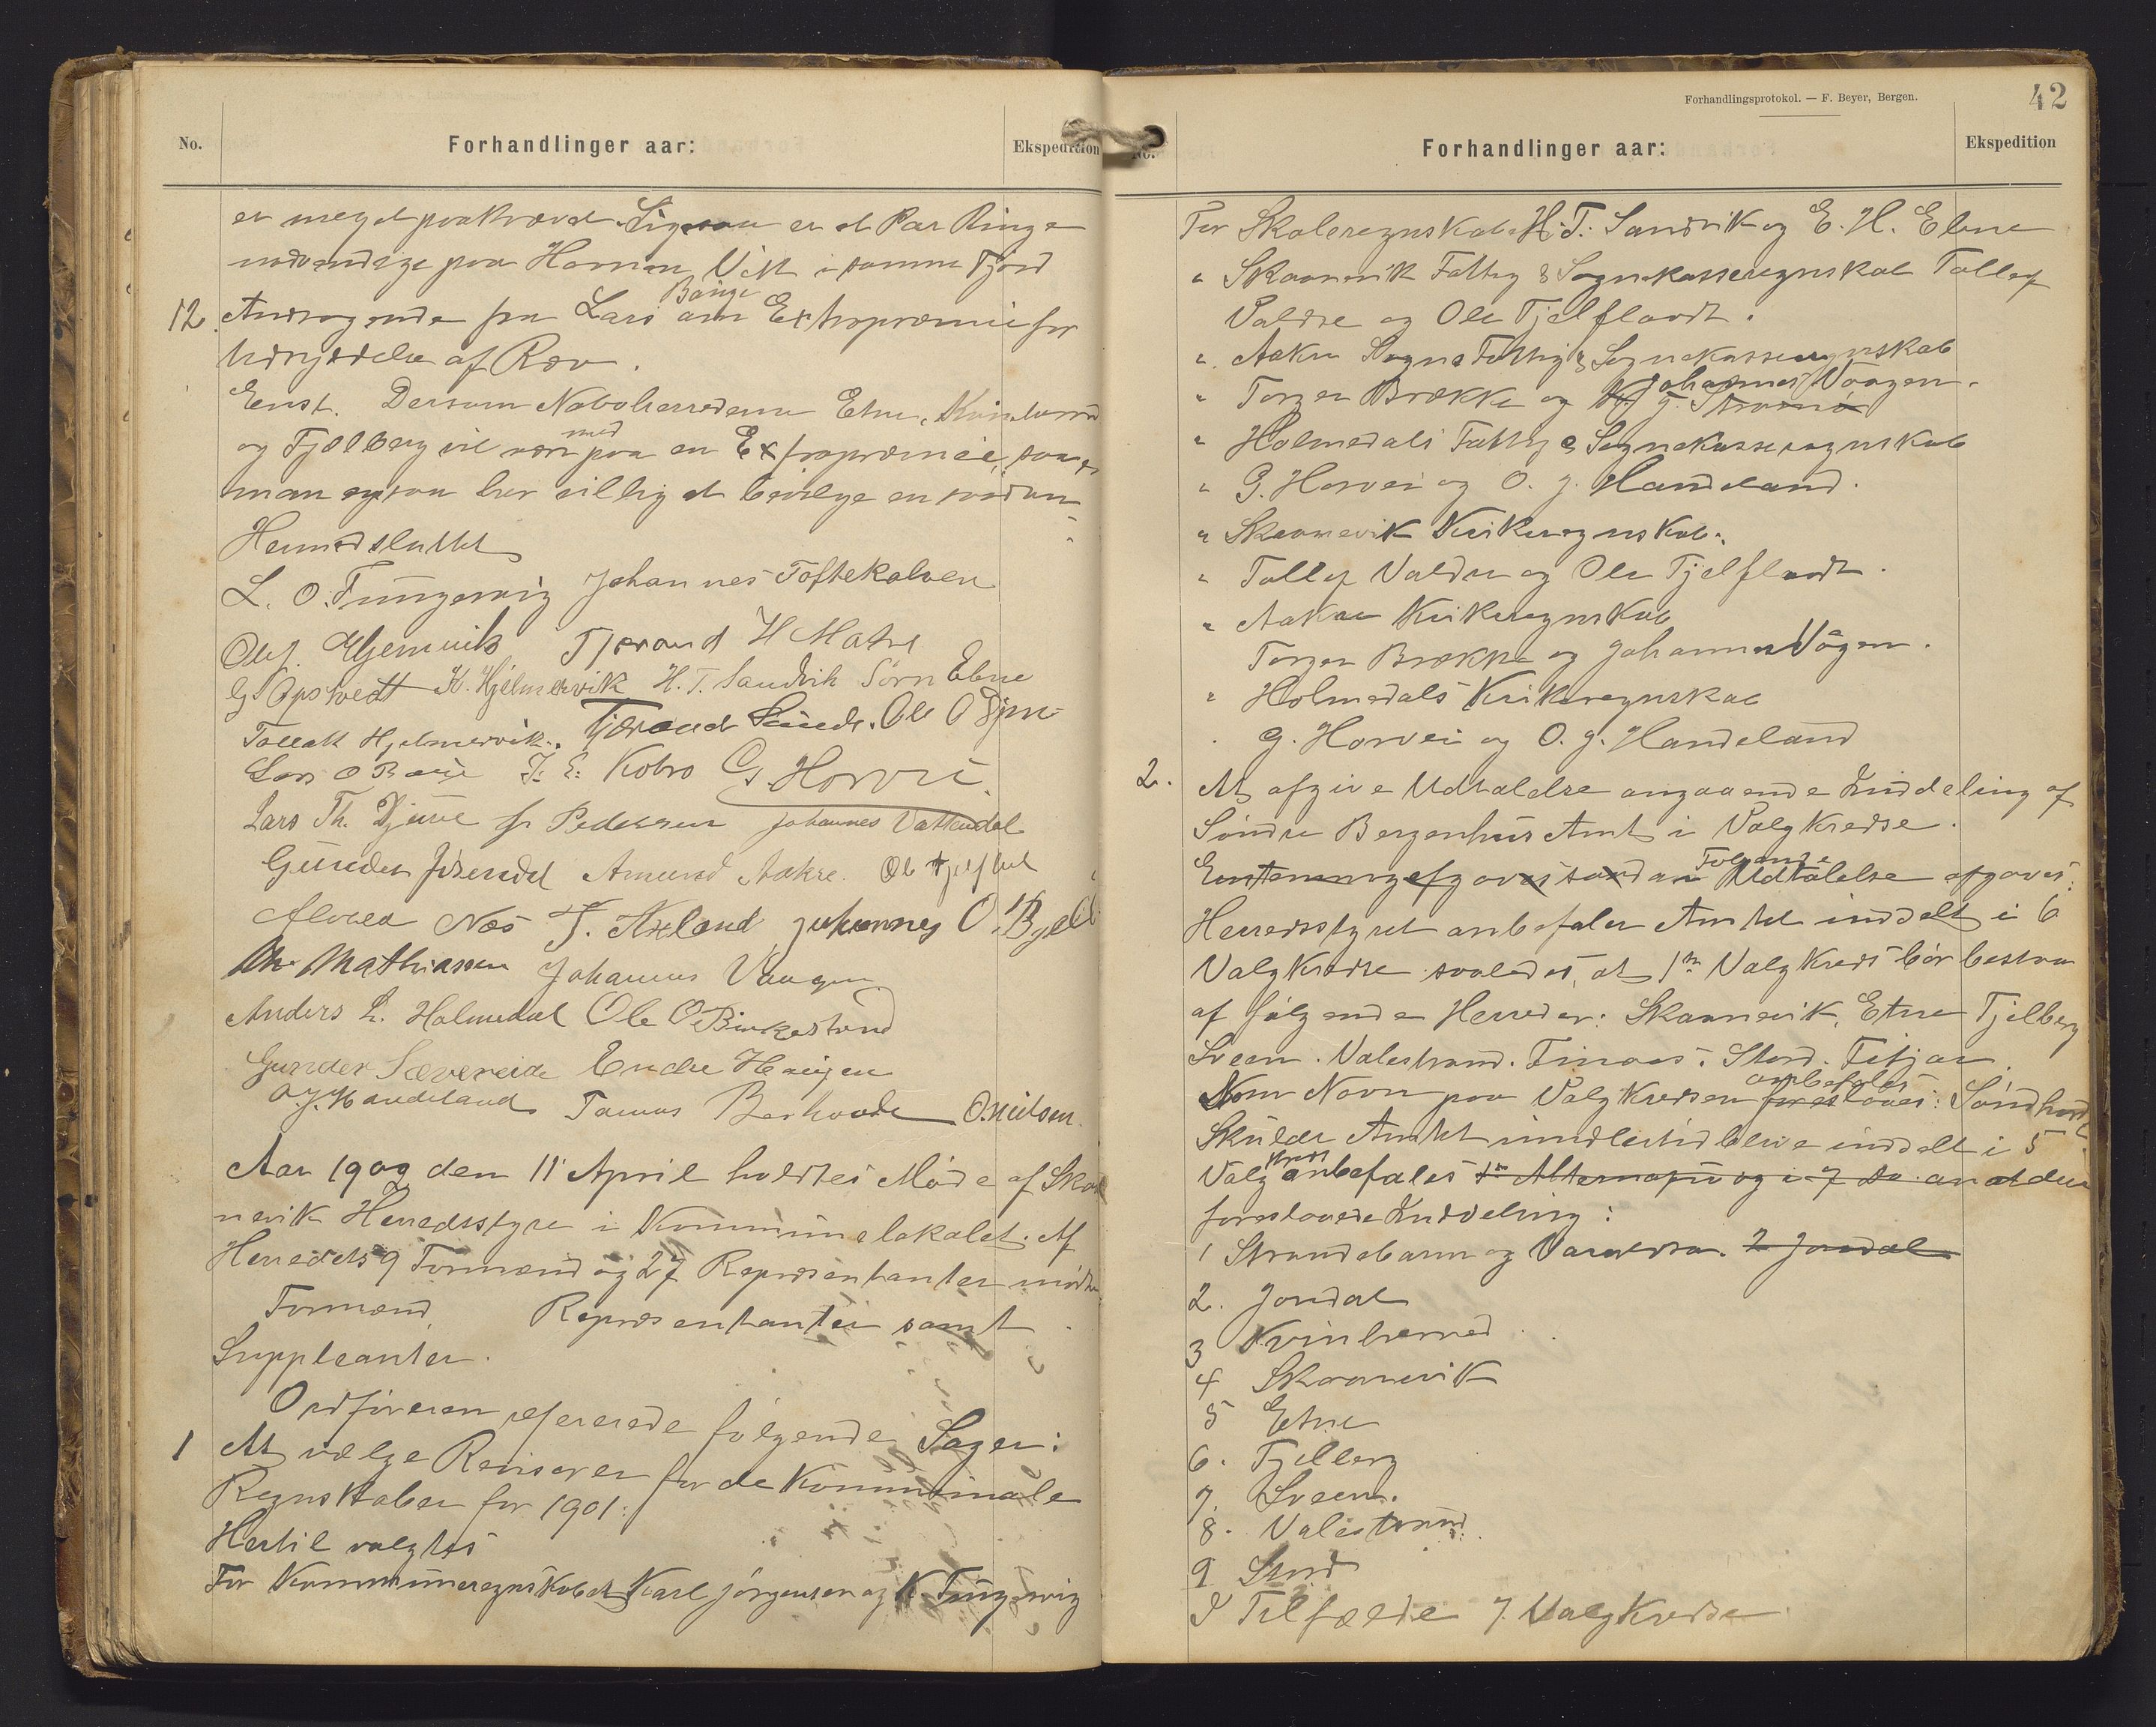 No.
Forhandlinger aar:
Ekspedition
er meget paakrævet. Ligesaa er et Par Ringe
nødvendige paa Hamn Vik i samme Fjord
12. Andragende fra Lars Bauge om Extrapræmie for
Udryddelse af Ræv.
Enst. Dersom Naboherrederne Etne, Kvinherred
og Fjelberg vil være med paa en Extrapræmie, saa er
man ogsaa her villig at bevilge en saadan
Hermed sluttet
L. O. Tungesvig Johannes Toftekalven
Olaf Hjemvik Tjerand H Matre
G Opstvedt K. Hjelmervik H. T. Sandvik Sørn Ebne
Tollak Hjelmervik. Tjerand Lunde. Ole O
Lars O Bauge T. E. Kobro G. Horvei.
Lars Th. Djuve Pedersen Johannes Vattendal
Gunder Amund Aakre. Ole Tjelflat
Næs T. Axland Johannes O.
Mathiassen Johannes Vaagen
Anders L. Holmedal Ole O Birkestrand
Gunder Sævereide Endre Haugen
O. J. Handeland Tomas Berhovde O. Nilsen.
Aar 1902 den 11 April holdtes Møde af Skaa-
nevik Herredsstyre i Kommunelokalet. Af
Herredets 9 Formænd og 27 Repræsentanter mødte
Formænd, Repræsentanter samt
Suppleanter.
Ordføreren refererede følgende Sager:
1 At vælge Revisorer for de Kommunale
Regnskaber for 1901:
Hertil valgtes
For Kommuneregnskabet Karl Jørgensen og K Tungesvig
Forhandlingsprotokol. — F. Beyer, Bergen.
42
No.
Forhandlinger aar:
Ekspedition
For Skoleregnskabet H. T. Sandvik og E. H. Ebne
" Skaanevik Fattig & Sognekasseregnskab Tollef
Valdre og Ole Tjelflaadt.
" Aakre Sogns Fattig & Sognekasseregnskab
" Torger Brække og J. Strømø Johannes Vaagen.
" Holmedals Fattig & Sognekasseregnskab
" G. Horvei og O. J. Handeland.
" Skaanevik Kirkeregnskab.
" Tollef Valdre og Ole Tjelflaadt.
" Aakre Kirkeregnskab
Torger Brække og Johannes Vågen.
" Holmedals Kirkeregnskab
G. Horvei og O. J. Handeland
2. At afgive Udtalelse angaaende Inddeling af
Søndre Bergenhus Amt i Valgkredse.
Enstemmig afgaves saadan Følgende Udtalelse afgaves:
Herredsstyret anbefaler Amtet inddelt i 6
Valgkredse saaledes, at 1ste Valgkreds bør bestaa
af følgende Herreder: Skaanevik, Etne Fjelberg
Sveen. Valestrand. Finaas. Stord. Fitjar.
Som Navn paa Valgkredsen foreslaaes anbefales: Søndhordl.
Skulde Amtet imidlertid blive inddelt i 5
Valgkreds anbefales 1ste Alternativ og i 7 da an at den
foreslaaede Inddeling:
1 Strandebarm og Varaldsø. 2 Jondal
2. Jondal
3 Kvinherred
4 Skaanevik
5 Etne
6. Fjelberg
7. Sveen.
8. Valestrand.
9 Stord
I Tilfælde 7. Valgkredse